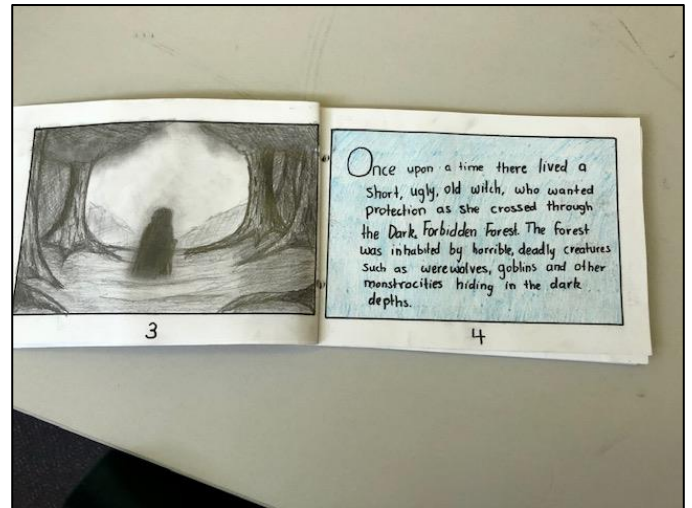 Once upon a time there lived a
short, ugly, old witch, who wanted
protection as she crossed through
the Dark, Forbidden Forest. The forest
was inhabited by horrible, deadly creatures
such as werewolves, goblins and other
monstrocities hiding in the dark
depths.
3
4